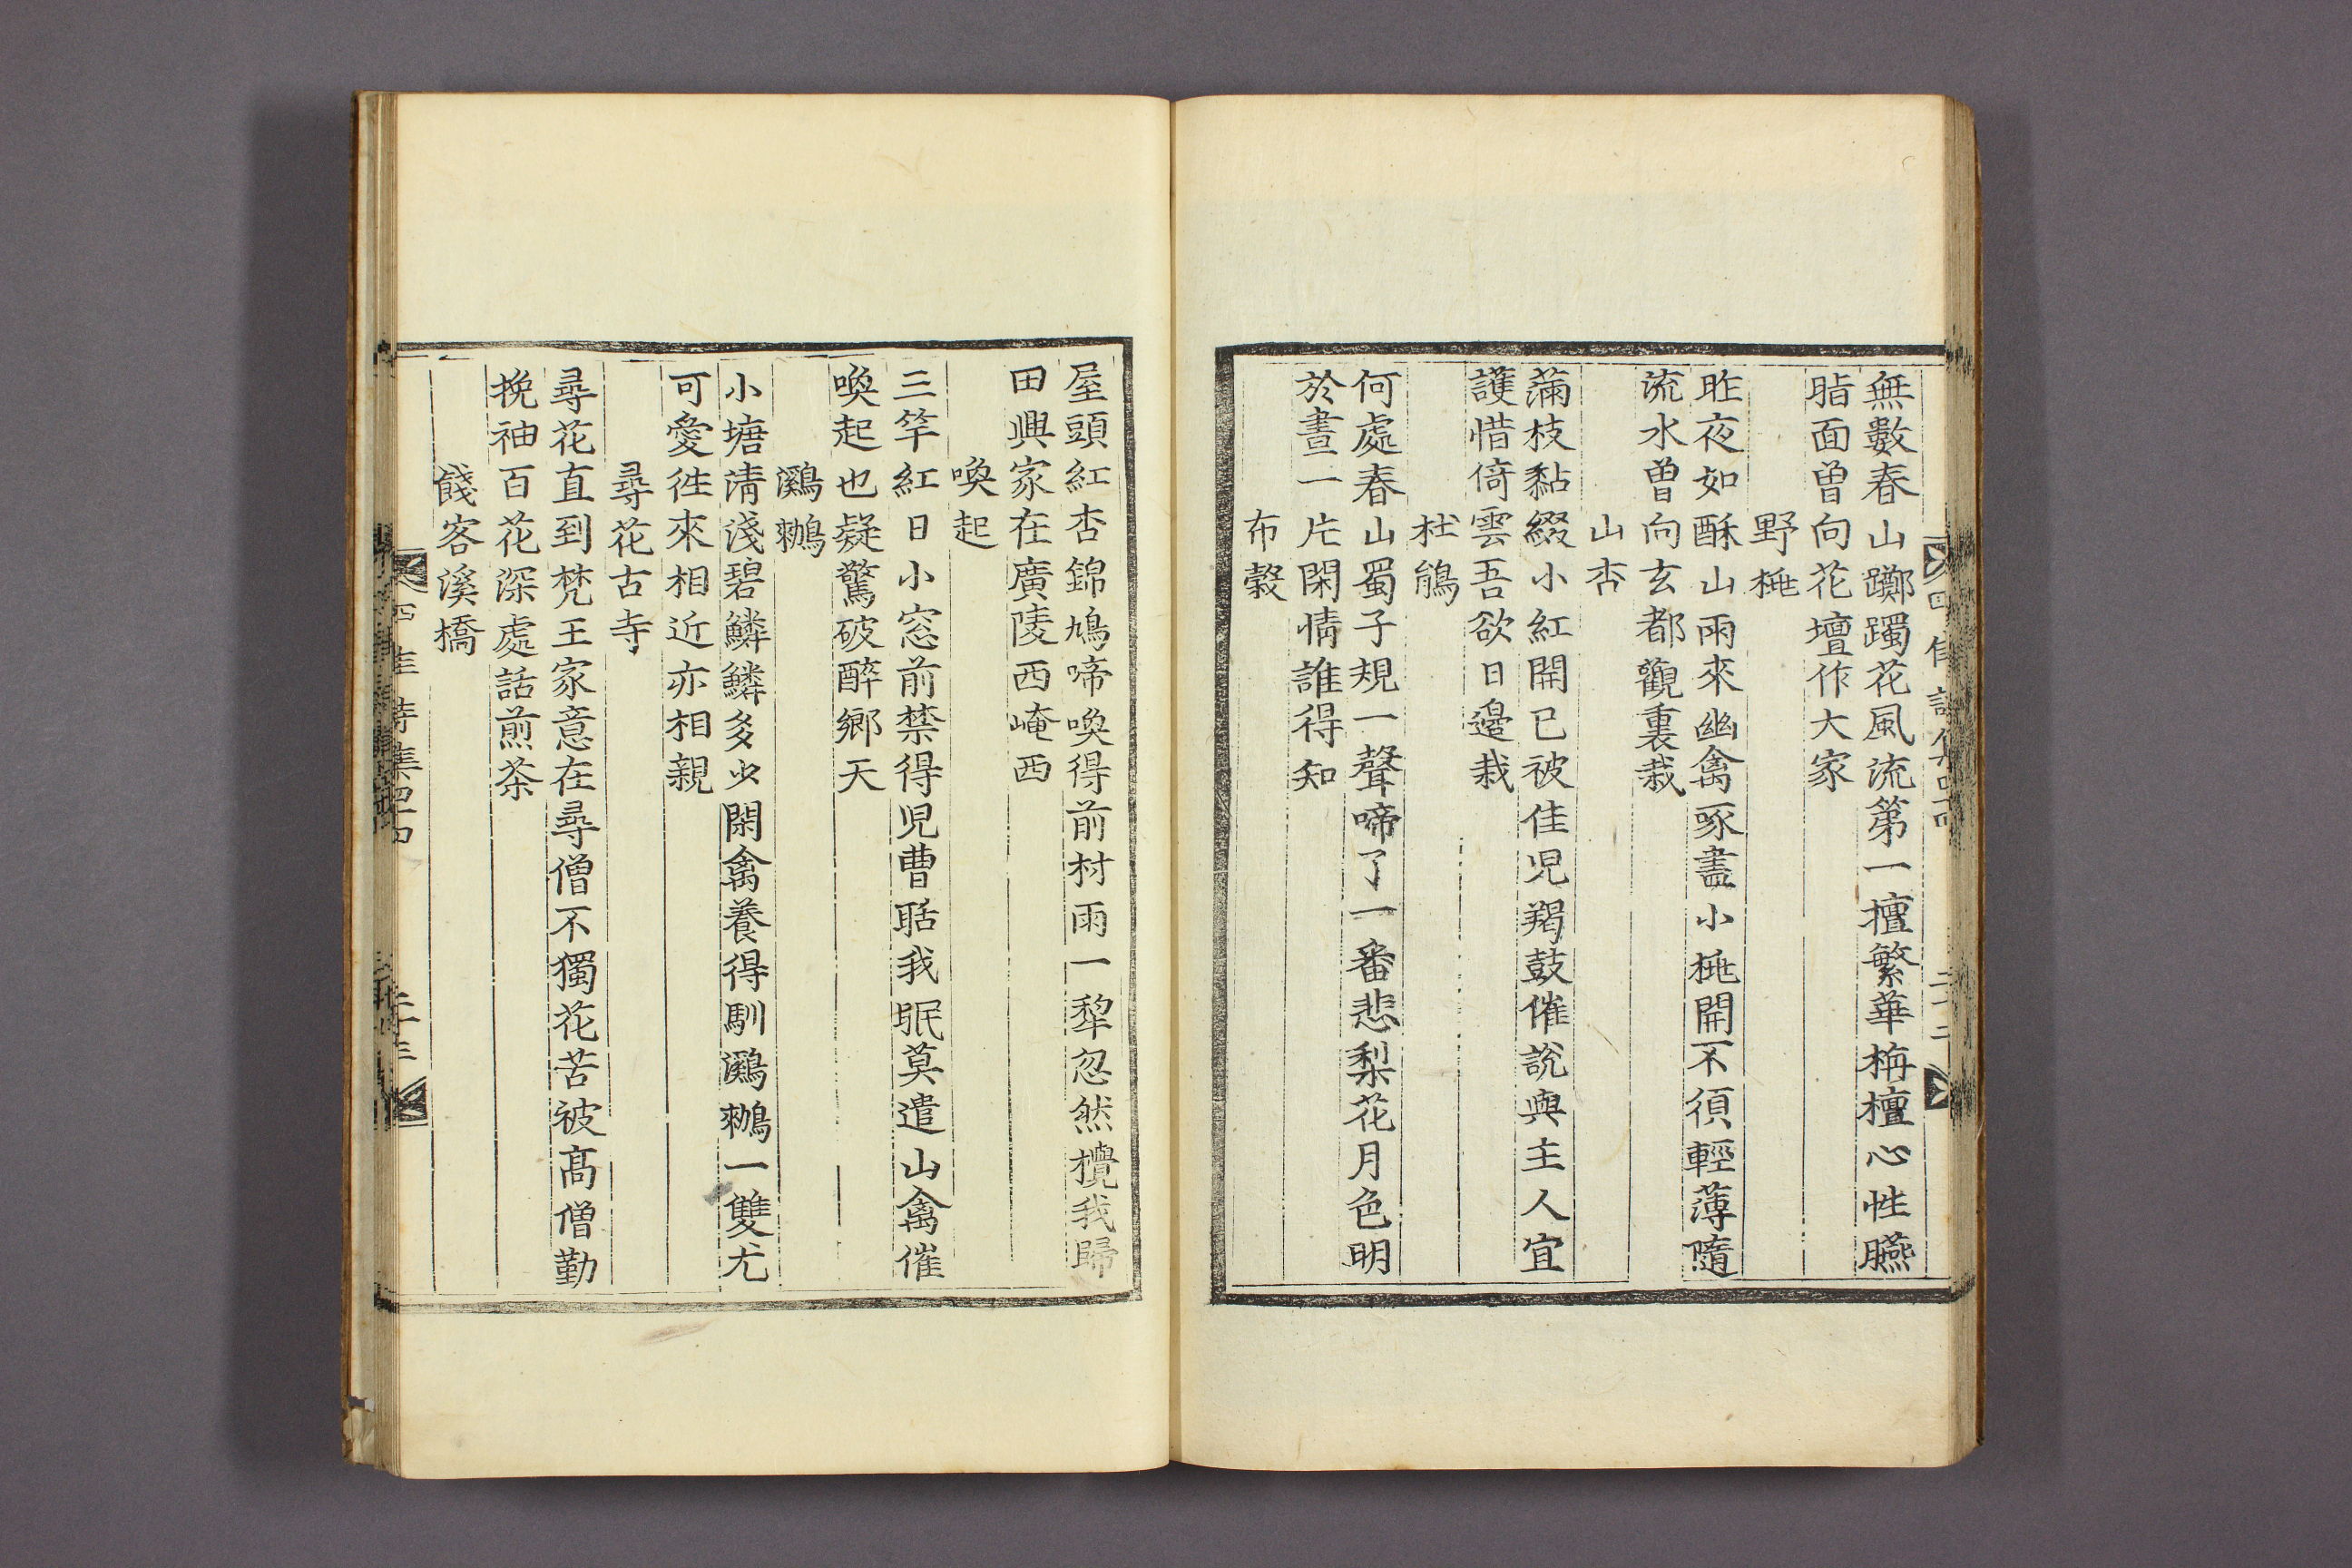 無數春山躑躅花風流第一擅繁華栴檀心性臙
脂面曾向花壇作大家
野桃
昨夜如酥山雨來幽禽啄盡小桃開不須輕薄隨
流水曾向玄都觀裏栽
山杏
滿枝黏綴小紅開已被佳児羯鼓催說與主人宜
護惜倚雲吾欲日邊栽
杜鵑
何處春山蜀子規一聲啼了一番悲梨花月色明
於晝一片閑情誰得知
布穀
屋頭紅杏錦鳩啼喚得前村雨一犂忽然攪我歸
田興家在廣陵西崦西
喚起
三竿紅日小窓前禁得児曹聒我眠莫遣山禽催
喚起也疑驚破醉鄉天
鸂鶒
小塘淸淺碧鱗鱗多少閑禽養得馴鸂鶒一雙尤
可愛徃來相近亦相親
尋花古寺
尋花直到梵王家意在尋僧不獨花苦被髙僧勤
挽袖百花深處話煎茶
餞客溪橋